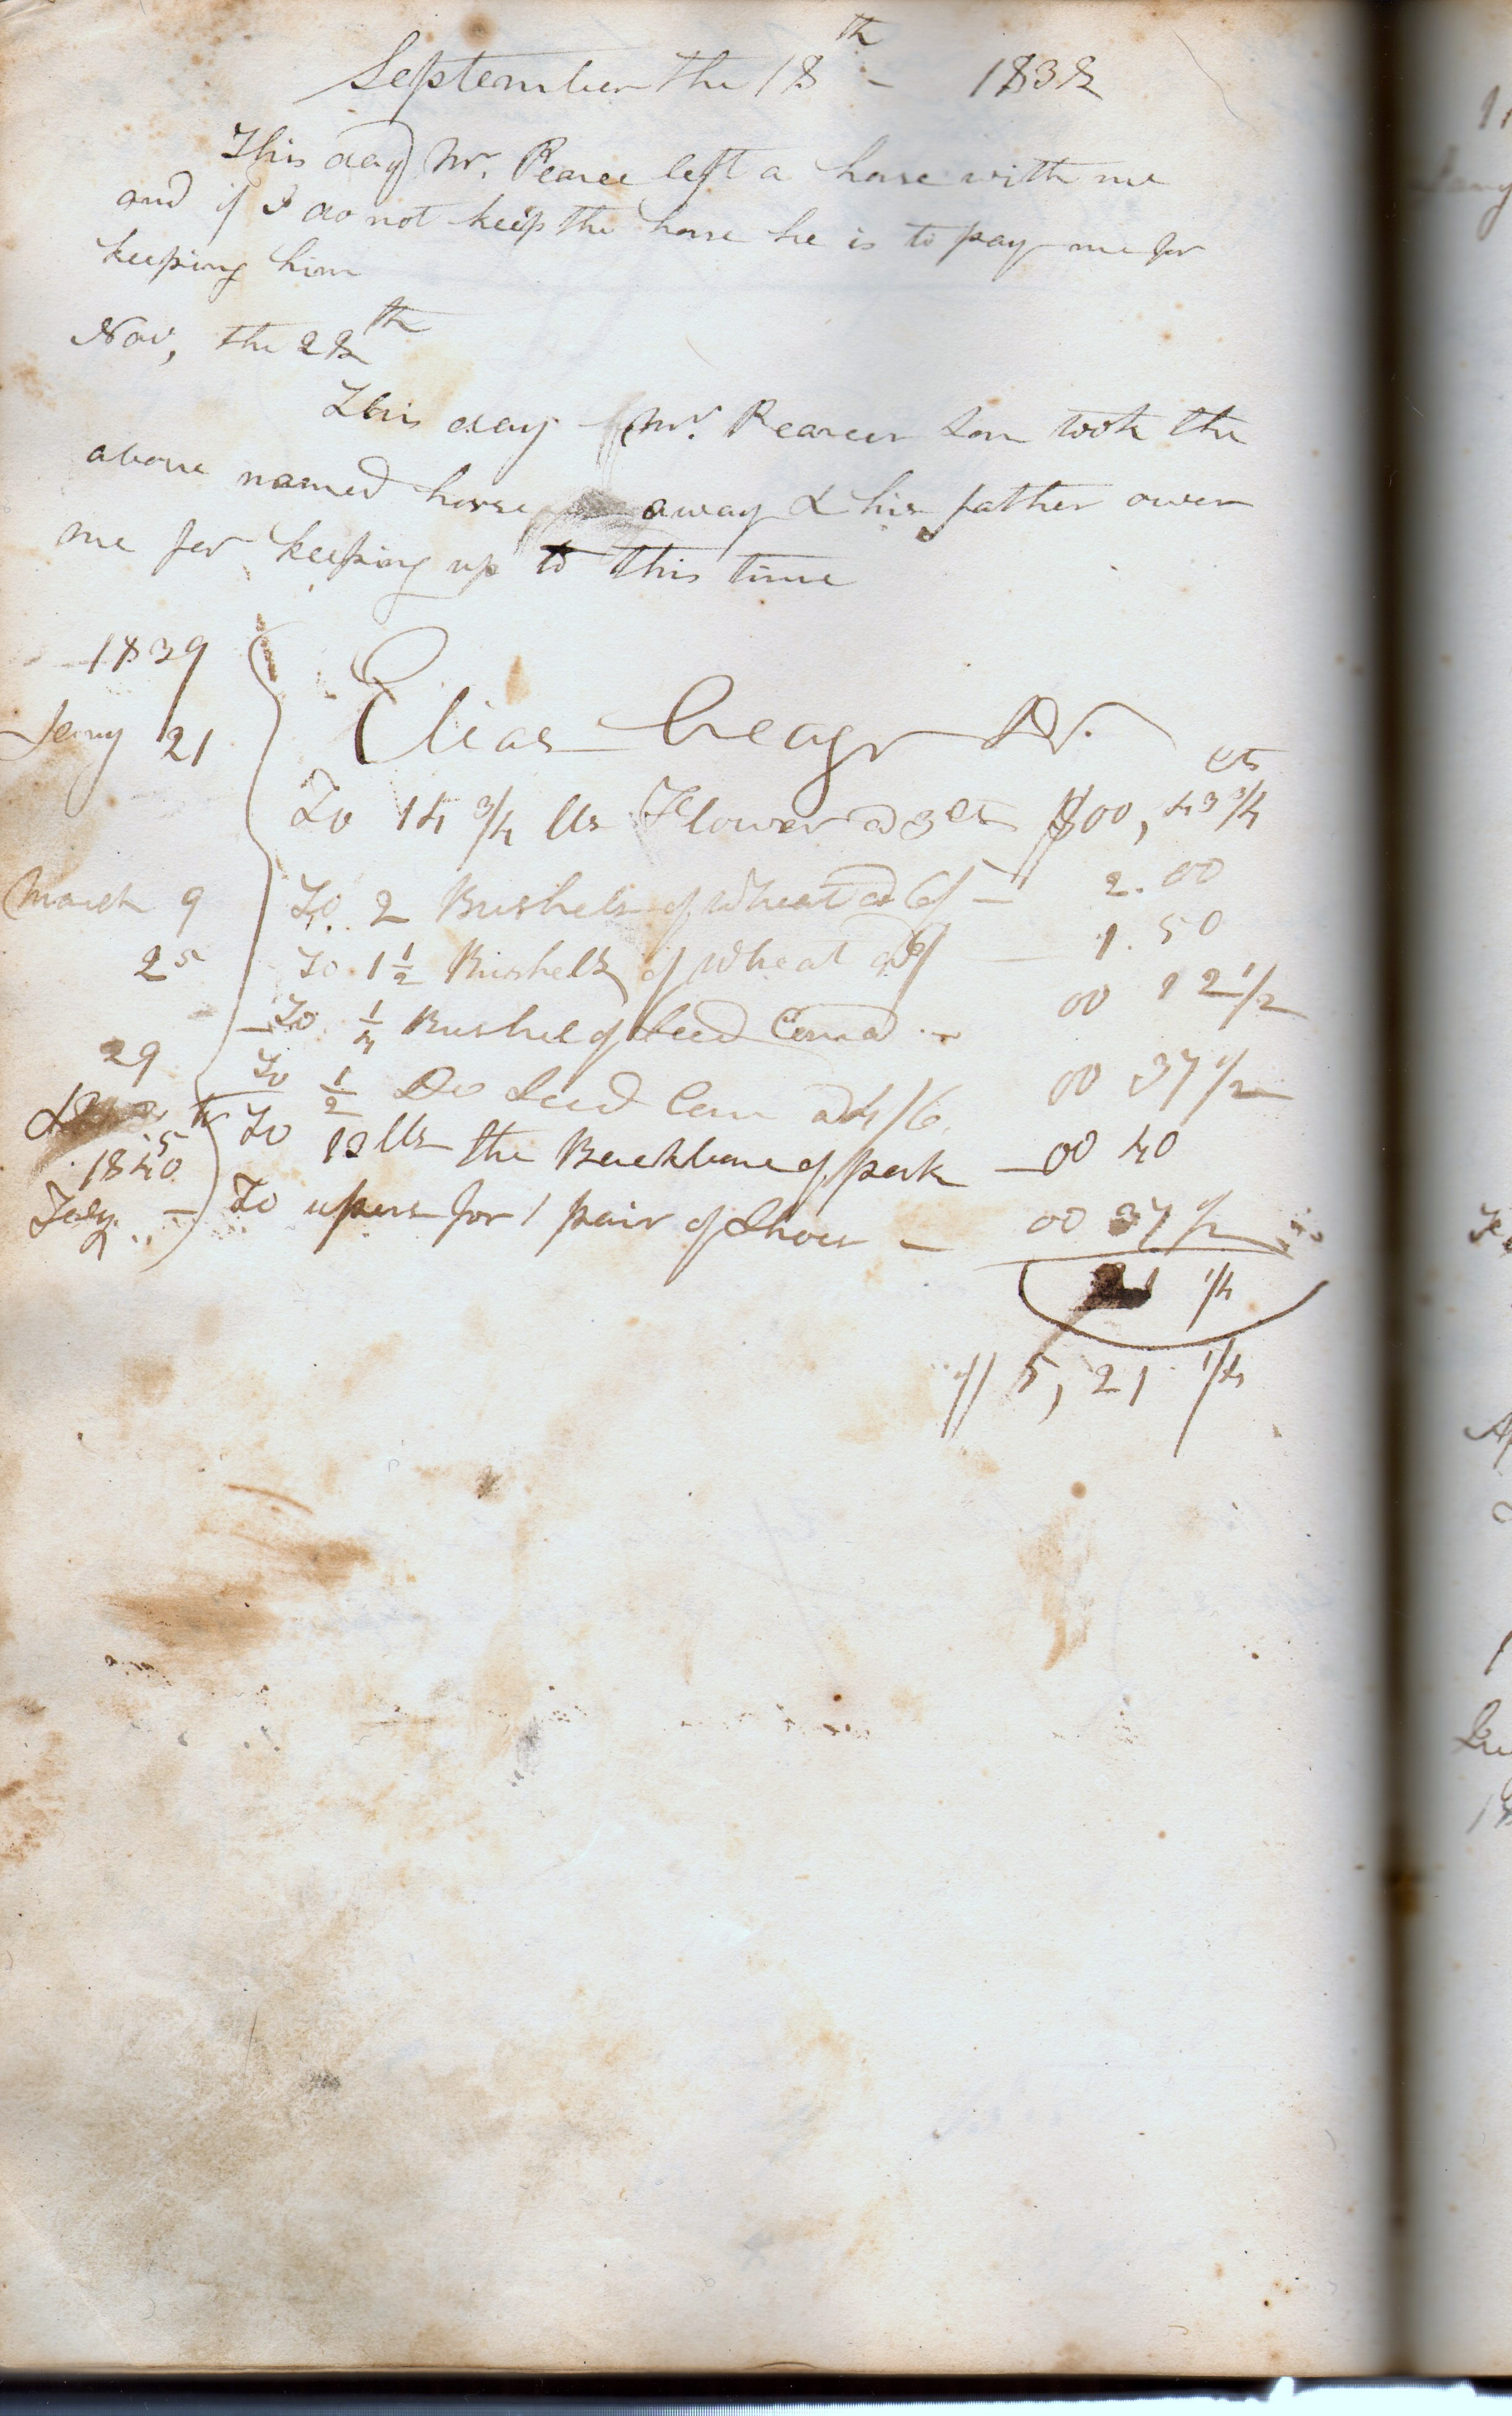 September the 18th - 1838
This day Mr. Pearce left a horse with me
and if I do not keep the horse he is to pay me for
keeping him
Nov, the 28th
This day Mr. Pearces Son took the
above named horse away & his father owes
me for keeping up to this time
1839
Jany 21 Elias Dr.
cts
To 14 3/4 lbs Flower a 3 cts $00, 43 3/4
March 9 To 2 Bushels of Wheat a 6/ - 2.00
25 To 1 1/2 Bushels of Wheat a 6/ - 1.50
To 1/4 Bushel of Seed Corn a - 00 12 1/2
29 To 1/2 Do Seed Corn a 4/6 00 37 1/2
To 12 lbs the Backbone of pork - 00 40
1840
July - To upers for 1 pair of Shoes - 00 37 1/2
21 1/4
$ 5, 21 1/4